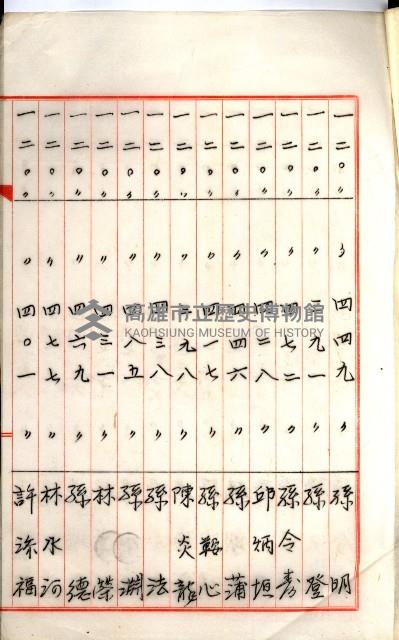 一二〇〃 〃 四四九 〃 孫明
一二〇〃 〃 二九一 〃 孫登
一二〇〃 〃 四七二 〃 孫令壽
一二〇〃 〃 四二八 〃 邱炳垣
一二〇〃 〃 四四六 〃 孫蒲
一二〇〃 〃 四一七 〃 孫鞍心
一二〇〃 〃 二九八 〃 陳炎龍
一二〇〃 〃 四三八 〃 孫法
一二〇〃 〃 四八五 〃 孫淵
一二〇〃 〃 四三一 〃 林榮
一二〇〃 〃 四六九 〃 孫德
一二〇〃 〃 四七七 〃 林水河
一二〇〃 〃 四〇一 〃 許添福
高雄市立歷史博物館
KAOHSIUNG MUSEUM OF HISTORY